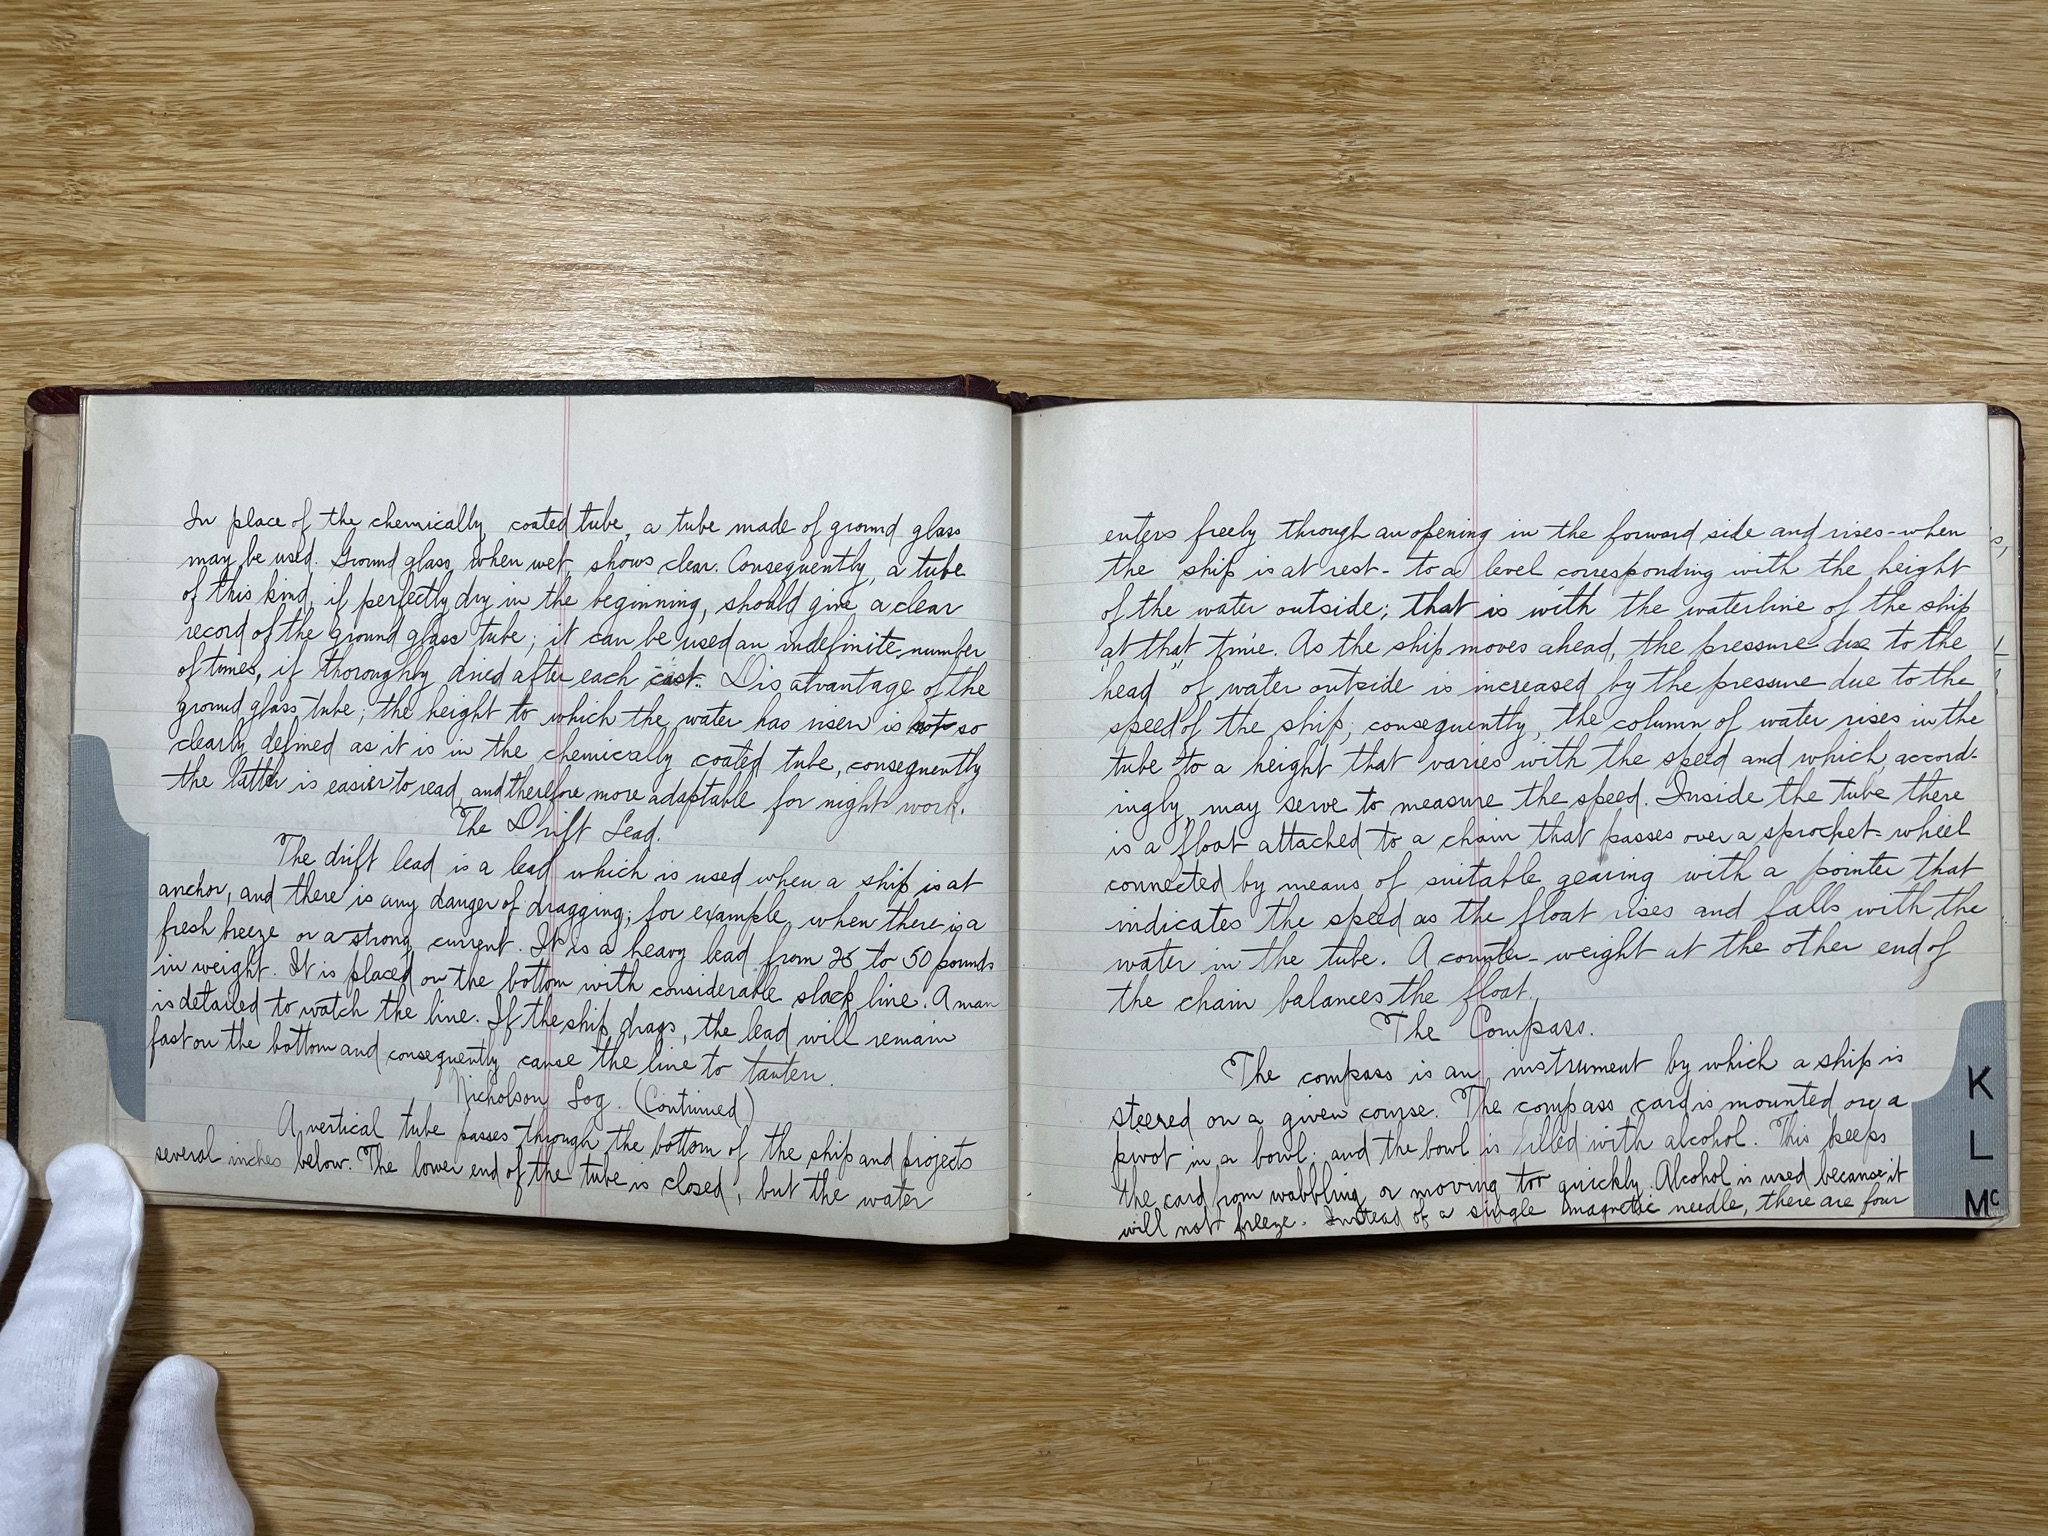 In place of the chemically coated tube, a tube made of ground glass
may be used. Ground glass, when wet, shows clear. Consequently, a tube
of this kind, if perfectly dry in the beginning, should give a clear
record of the ground glass tube; it can be used an indefinite number
of times, if thoroughly dried after each cast. Disatvantage of the
ground glass tube; the height to which the water has risen is not so
clearly defined as it is in the chemically coated tube, consequently
the latter is easier to read, and therefore more adaptable for night work.
The Drift Lead.
The drift lead is a lead which is used when a ship is at
anchor, and there is any danger of dragging; for example, when there is a
fresh breeze or a strong current. It is a heavy lead from 25 to 50 pounds
in weight. It is placed on the bottom with considerable slack line. A man
is detailed to watch the line. If the ship drags, the lead will remain
fast on the bottom and consequently cause the line to tauten.
Nicholson Log. (Continued)
A vertical tube passes through the bottom of the ship and projects
several inches below. The lower end of the tube is closed, but the water
enters freely through an opening in the forward side and rises-when
the ship is at rest- to a level corresponding with the height
of the water outside; that is with the waterline of the ship
at that time. As the ship moves ahead, the pressure due to the
"head" of water outside is increased by the pressure due to the
speed of the ship; consequently, the column of water rises in the
tube to a height that varies with the speed and which, accord-
ingly, may serve to measure the speed. Inside the tube there
is a float attached to a chain that passes over a sprocket-wheel
connected by means of suitable gearing with a pointer that
indicates the speed as the float rises and falls with the
water in the tube. A counter-weight at the other end of
the chain balances the float.
The Compass.
The compass is an instrument by which a ship is
steered on a given course. The compass card is mounted on a
pivot in a bowl; and the bowl is filled with alcohol. This keeps
the card from wabbling or moving too quickly. Alcohol is used because it
will not freeze. Instead of a single magnetic needle, there are four
K
L
Mc